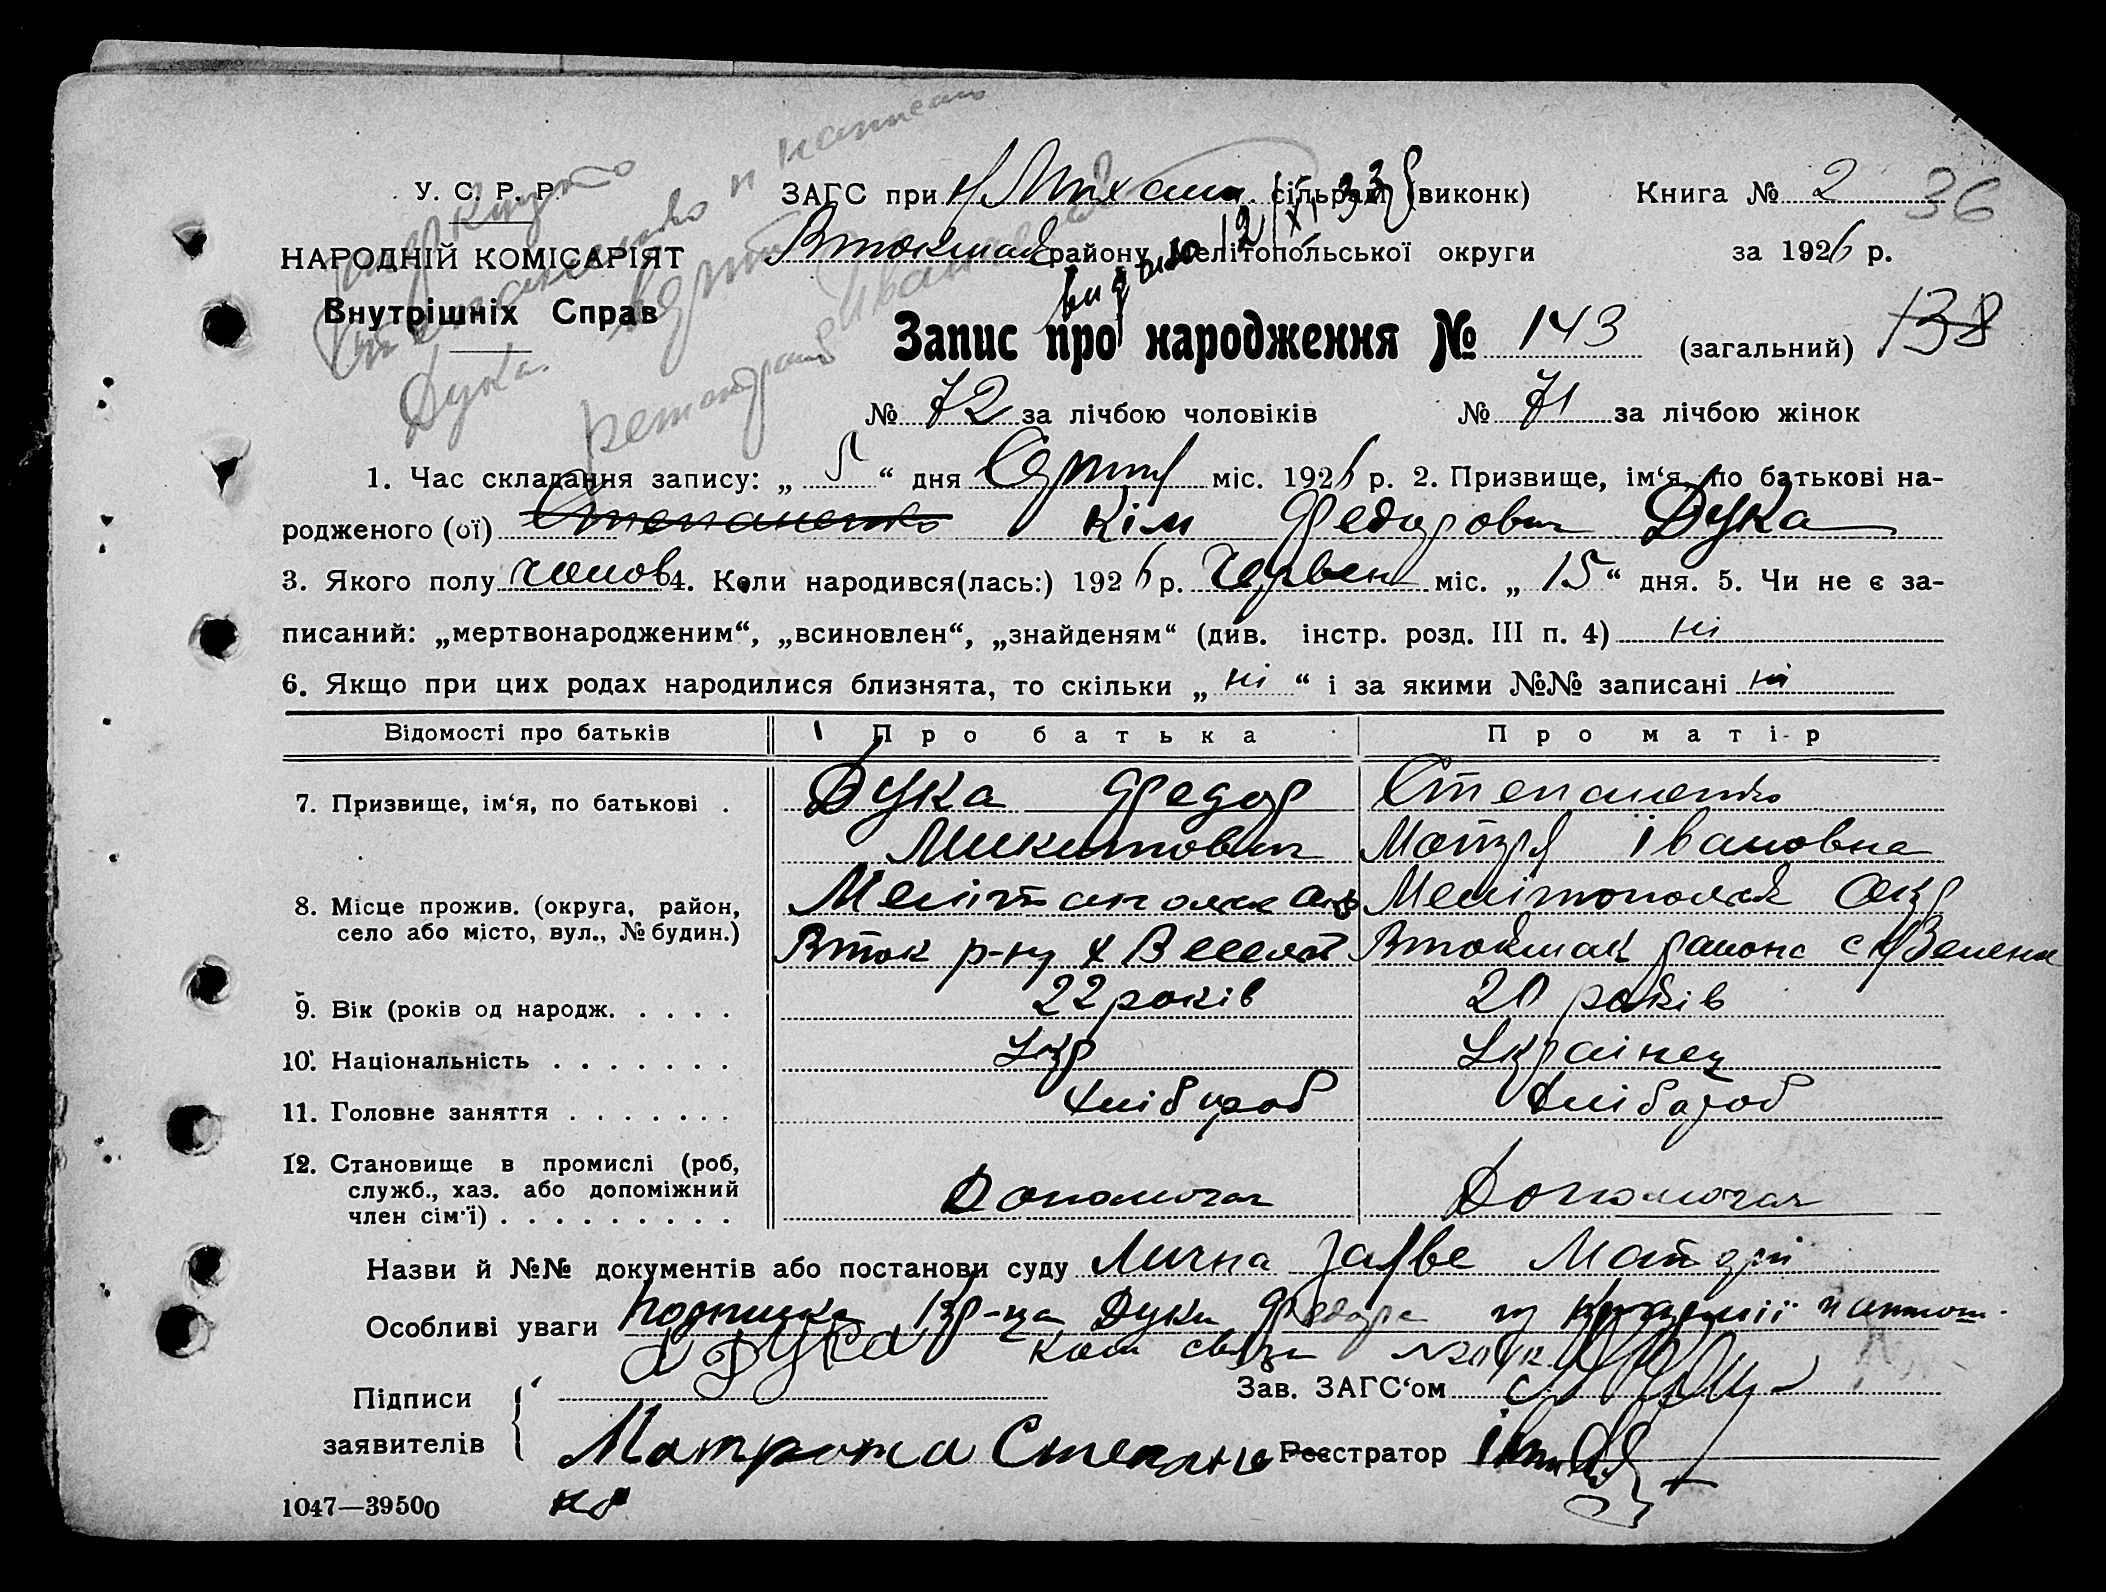 У. С. Р. Р.
ЗАГС при Н Михайл. сільраді (виконк)
Книга № 2 36
НАРОДНІЙ КОМІСАРІЯТ
Втокмак району Мелітопольської округи
за 1926 р.
Внутрішніх Справ
видано 12/XI 33
Запис про народження № 143 (загальний) 138
Дука.
№ 72 за лічбою чоловіків № 71 за лічбою жінок
1. Час складання запису: „ 5 “ дня Серпня міс. 1926 р. 2. Призвище, ім‘я, по батькові на-
родженого (ої) Степаненко Кім Федорович Дука
3. Якого полу чолов 4. Коли народився(лась:) 1926 р. Червен міс. „ 15 “ дня. 5. Чи не є за-
писаний: „мертвонародженим“, „всиновлен“, „знайденям“ (див. інстр. розд. III п. 4) ні
6. Якщо при цих родах народилися близнята, то скільки „ ні “ і за якими №№ записані ні
Відомості про батьків Про батька Про матір
7. Призвище, ім‘я, по батькові . Дука Федор Степаненко
Микитович Мотря Івановна
8. Місце прожив. (округа, район, село або місто, вул., № будин.) Мелітопольск Окр Мелітопольск Окр
Вток р-ну Х Веселий Втокмак района с
9. Вік (років од народж. . . . . 22 років 20 років
10. Національність . . . . . . . Укр Українец
11. Головне заняття . . . . . . . Хлібороб Хлібороб
12. Становище в промислі (роб, служб., хаз. або допоміжний член сім‘ї) . . . . . . . . . Допомогач Допомогач
Назви й №№ документів або постанови суду Лична заяве Мотрі
Особливі уваги Подписка кр-ца Дуки Федора
Ф Дука
Підписи
заявителів
Зав. ЗАГС‘ом
Матрона Степанен
ко
Реєстратор
1047—39500